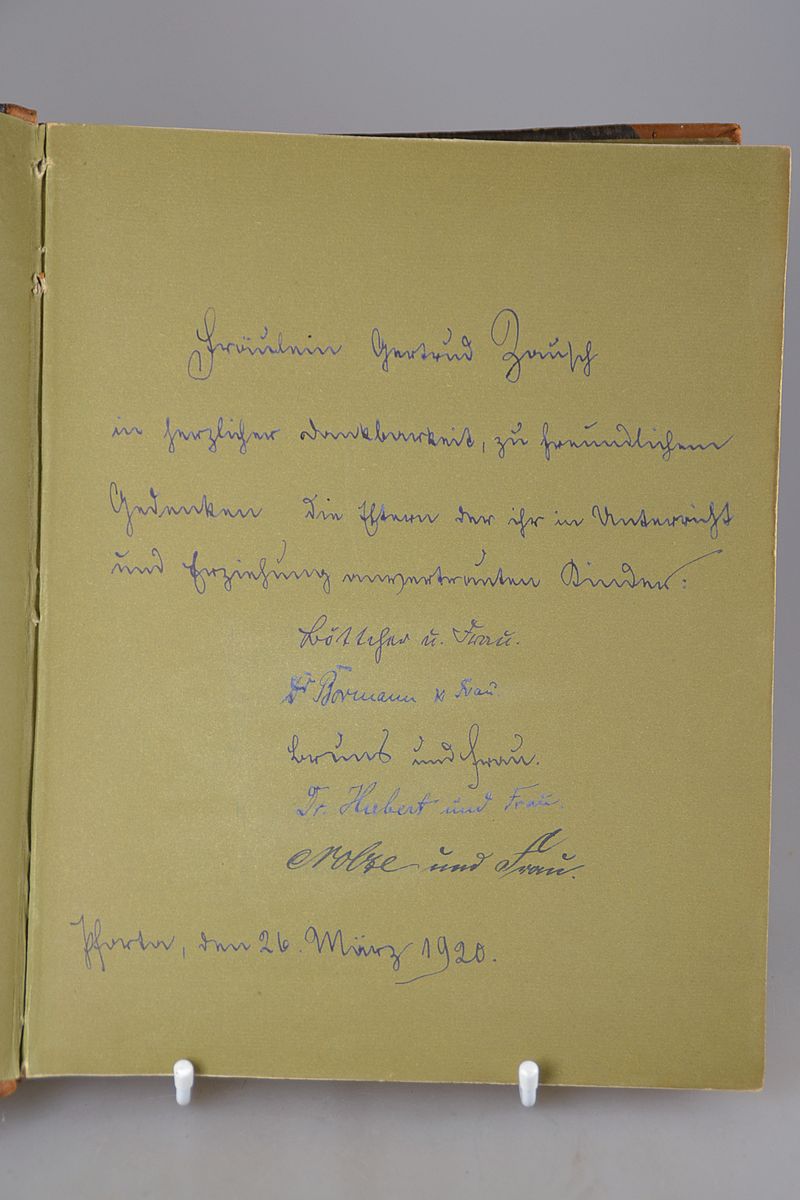 Fräulein Gertrud Zausch
in herzlicher Dankbarkeit, zu freundlichem
Gedenken die Eltern der ihr in Unterricht
und Erziehung anvertrauten Kinder:
Böttcher u. Frau.
Dr Bormann u Frau.
Bruns und Frau.
Dr. Hubert und Frau.
Nolze und Frau.
Pforta, den 26. März 1920.